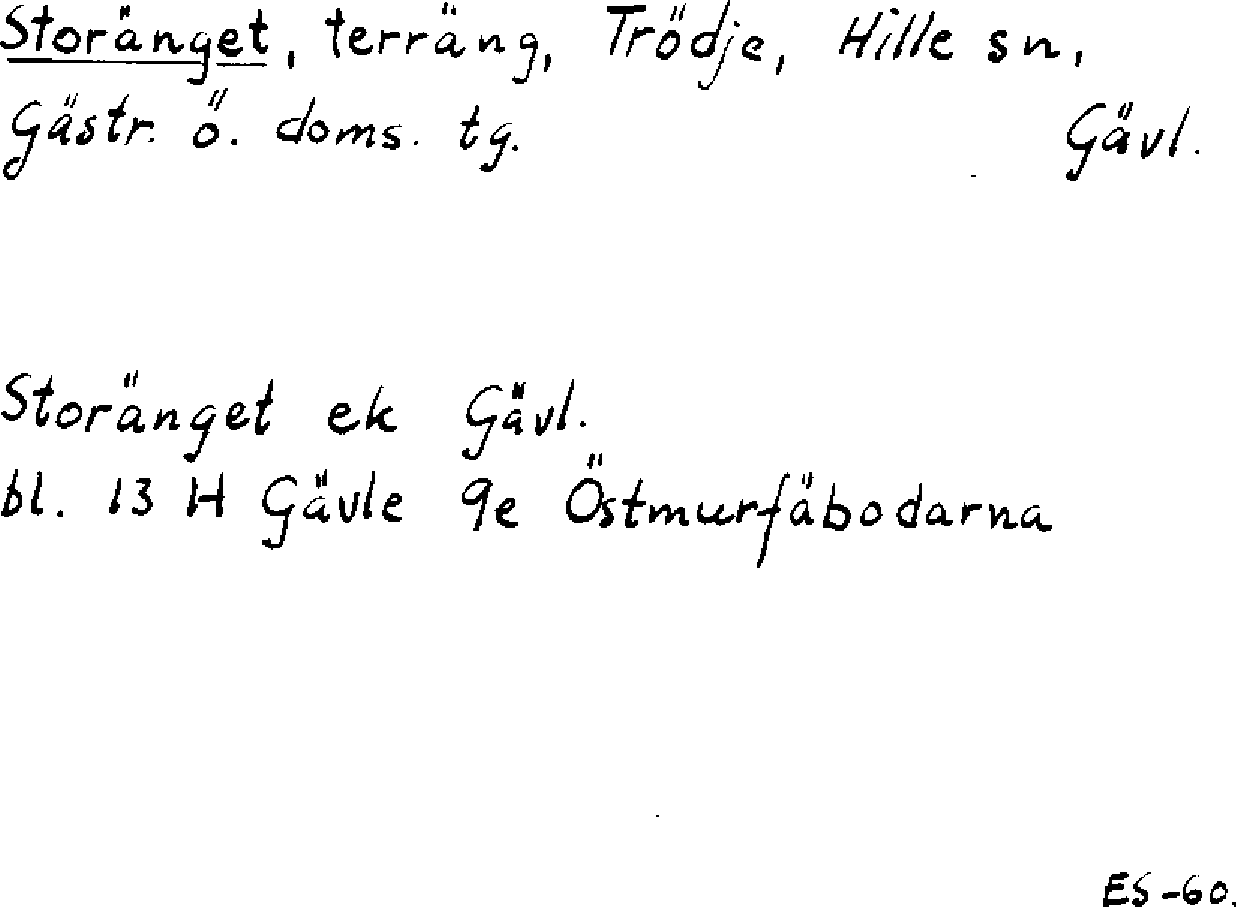 Storänget, terräng, Trödje, Hille sn,
Gästr. ö. doms. tg. Gävl.
Storänget ek Gävl.
bl. 13 H Gävle 9e Östmurfäbodarna
ES-60.